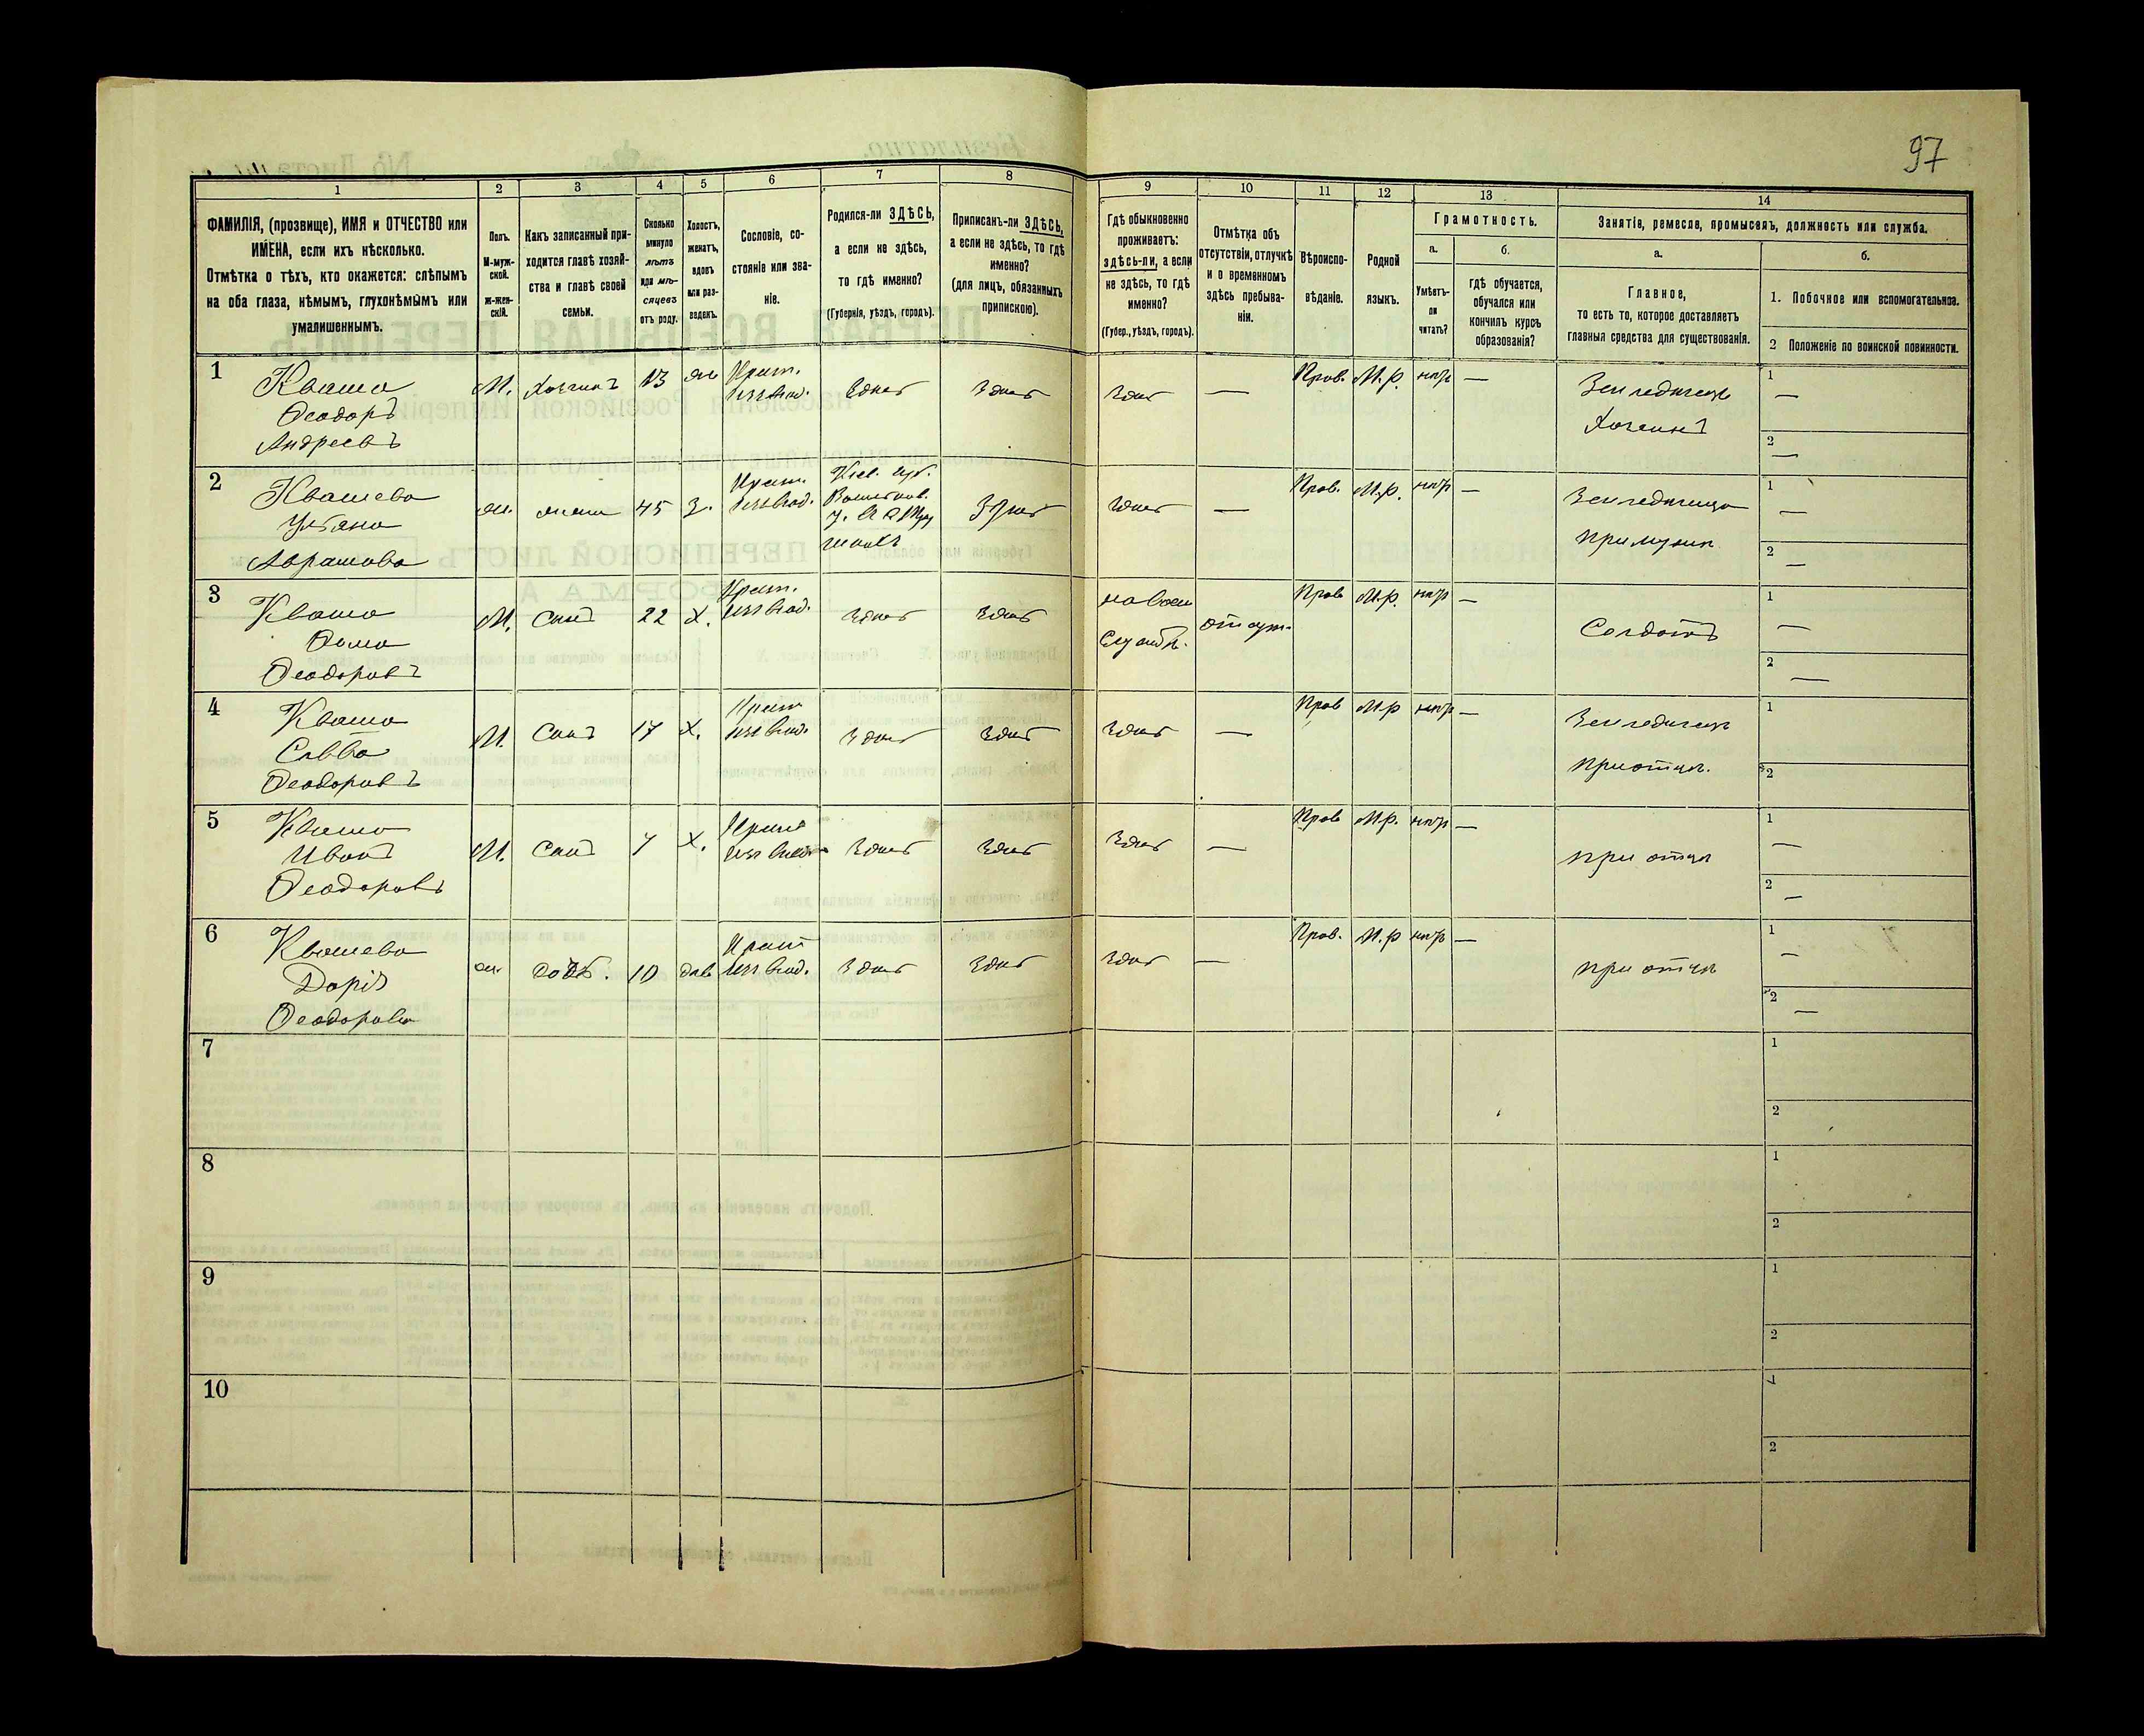 97
1 2 3 4 5 6 7 8 9 10 11 12 13 14
ФАМИЛІЯ, (прозвище), ИМЯ и ОТЧЕСТВО или
ИМЕНА, если ихъ нѣсколько.
Отмѣтка о тѣхъ, кто окажется: слѣпымъ
на оба глаза, нѣмымъ, глухонѣмымъ или
умалишеннымъ.
Полъ.
М-муж-
ской.
Ж-жен-
скій.
Какъ записанный при-
ходится главѣ хозяй-
ства и главѣ своей
семьи.
Сколько
минуло
лѣтъ
или мѣ-
сяцевъ
отъ роду.
Холостъ,
женатъ,
вдовъ
или раз-
веденъ.
Сословіе, со-
стояніе или зва-
ніе.
Родился-ли ЗДѢСЬ,
а если не здѣсь,
то гдѣ именно?
(Губернія, уѣздъ, городъ).
Приписанъ-ли ЗДѢСЬ,
а если не здѣсь, то гдѣ
именно?
(для лицъ, обязанныхъ
припискою).
Гдѣ обыкновенно
проживаетъ:
здѣсь-ли, а если
не здѣсь, то гдѣ
именно?
(Губер., уѣздъ, городъ).
Отмѣтка объ
отсутствіи, отлучкѣ
и о временномъ
здѣсь пребыва-
ніи.
Вѣроиспо-
вѣданіе.
Родной
языкъ.
Грамотность.
а.
Умѣетъ-
ли
читать?
б.
гдѣ обучается,
обучался или
кончилъ курсъ
образованія?
Занятіе, ремесло, промыселъ, должность или служба.
а.
Главное,
то есть то, которое доставляетъ
главныя средства для существованія.
б.
1. Побочное или вспомогательное.
2 Положеніе по воинской повинности.
1
Кваша
Ѳеодоръ
Андреевъ
М. Хозяинъ
Крест.
Здесь Здесь Здесь —
Пров. М.р. —
Хозяинъ
1 —
2 —
2
Квашева
Ульяна
Аврамова
жена 45 З.
Крест.
Кіев. губ.
Здесь Здесь —
Пров. М.р. —
1 —
2 —
3
Кваша
Ѳома
Ѳеодоровъ
М. Сынъ 22 Х.
Крест.
Здесь Здесь
Пров М.р. —
Солдатъ
1 —
2 —
4
Кваша
Савва
Ѳеодоровъ
М. Сынъ 17 Х.
Крест
Здесь Здесь Здесь —
Пров М.р —
при отцѣ.
1
2
5
Кваша
Иванъ
Ѳеодоровъ
М. Сынъ 7 Х.
Здесь Здесь Здесь —
Пров М.р. —
при отцѣ
1 —
2 —
6
Квашева
Дарія
Ѳеодорова
ж. дочь. 10 дѣв
Крест
Здесь Здесь Здесь —
Пров. М.р —
при отцѣ
1 —
2 —
7
1
2
8
1
2
9
1
2
10
1
2